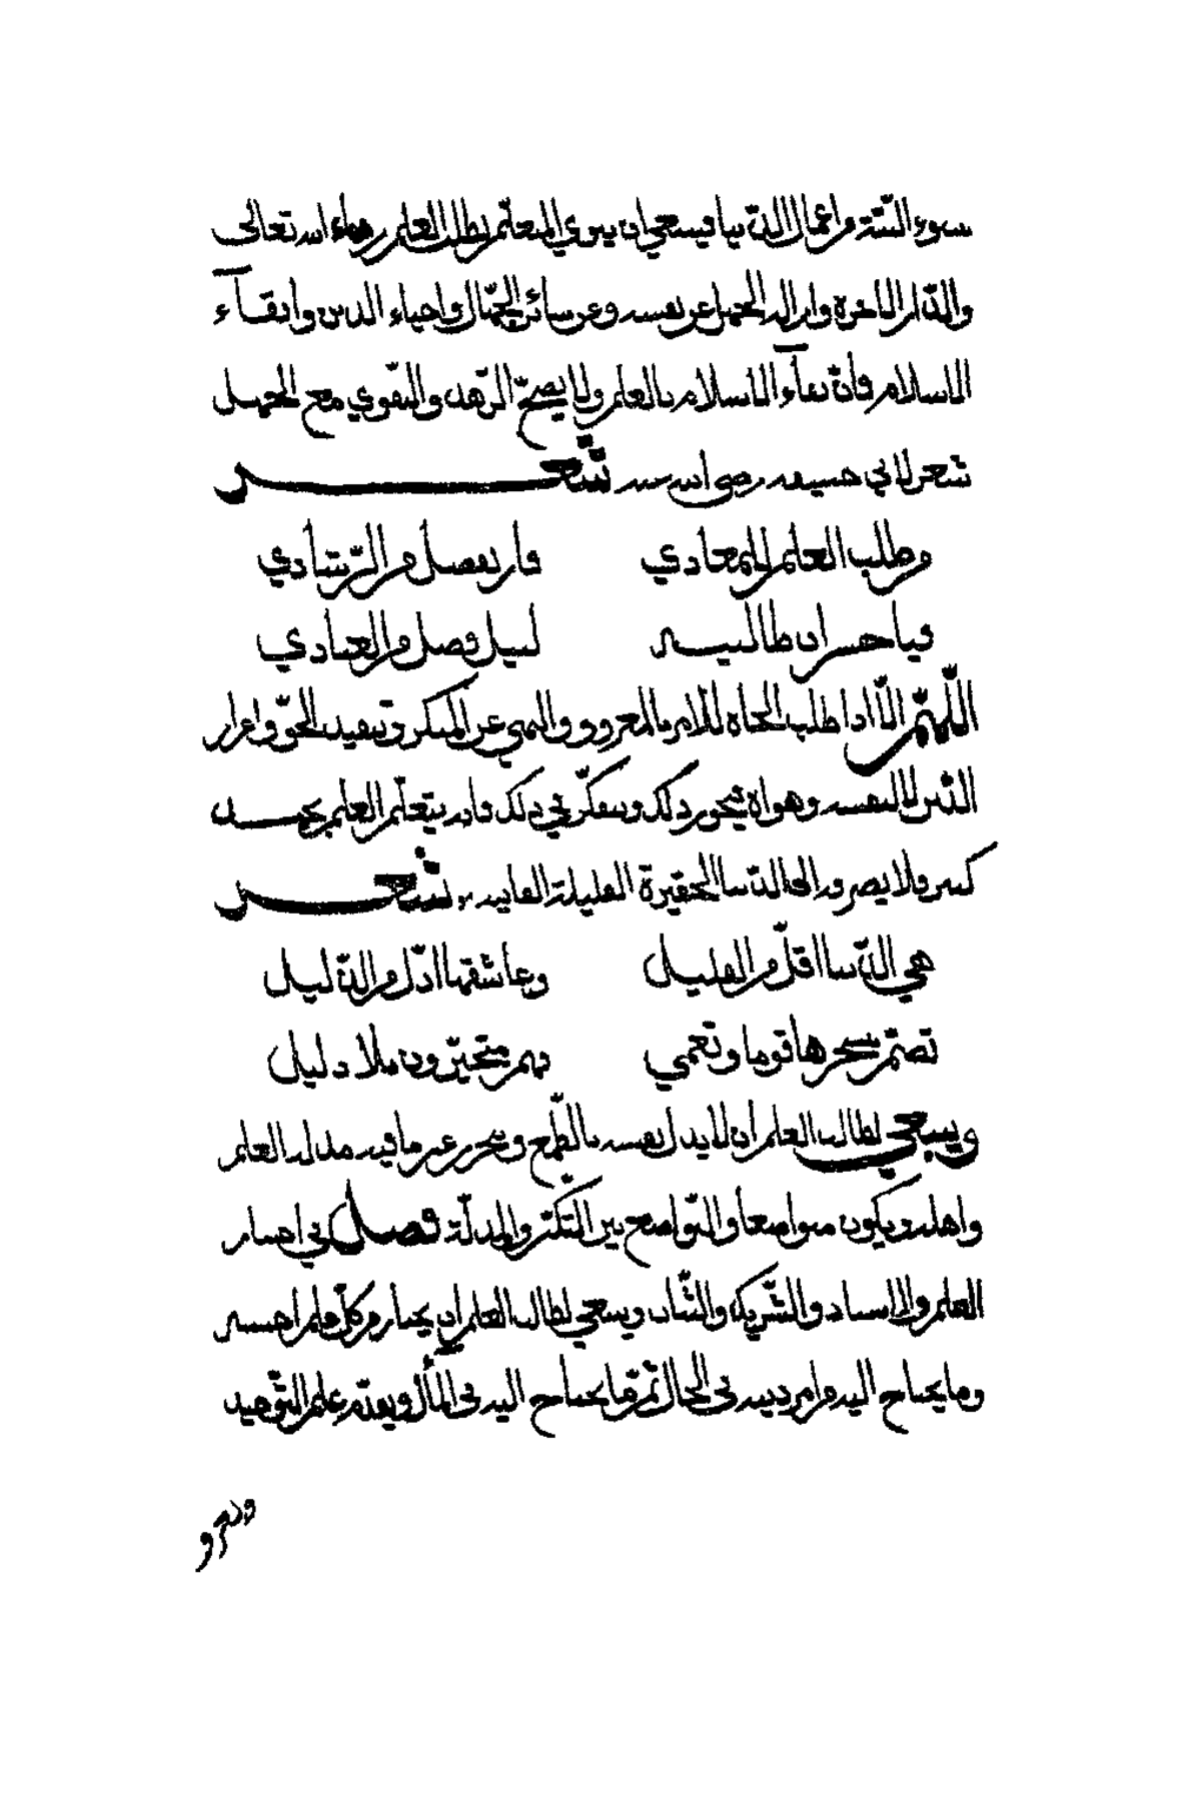 سوء النيّة من اعمال الدنيا فينبغي ان ينوي المتعلّم بطلب العلم رضاء الله تعالى
والدّار الآخرة وازالة الجهل عن نفسه وعن سائر الجهّال واحياء الدين وابقآء
الاسلام فان بقآء الاسلام بالعلم ولا يصحّ الزّهد والتقوي مع الجهل
شعر لابي حنيفه رضى الله عنه شعر
من طلب العلم للمعادي فاز بفضل من الرّشادي
فيا خسران طالبيه لنيل فضل من العبادي
اللّهمّ الّا اذا طلب الجاه للامر بالمعروف والنهي عن المنكر وتنفيذ الحقّ واعزاز
الدّين لا لنفسه وهواه فيجوز ذلك ويتفكّر في ذلك فانه يتعلّم العلم بجهد
كثير فلا يصرفه الى الدّنيا الحقيرة القليلة الفانيه شعر
هي الدّنيا اقلّ من القليل وعاشقها اذلّ من الذليل
تصمّ بسحرها قوما وتعمي فهم متحيّرون بلا دليل
وينبغي لطالب العلم ان لا يذل نفسه بالطّمع ويتحرز عن ما فيه مذلة العلم
واهله ويكون متواضعا والتّواضع بين التّكبّر والمذلّة فصل في اختيار
العلم والاستاد والشّريك والثّبات وينبغي لطالب العلم ان يختار من كلّ علم احسنه
وما يحتاج اليه من امر دينه في الحال ثمّ ما يحتاج اليه في المأل ويقدّم علم التّوحيد